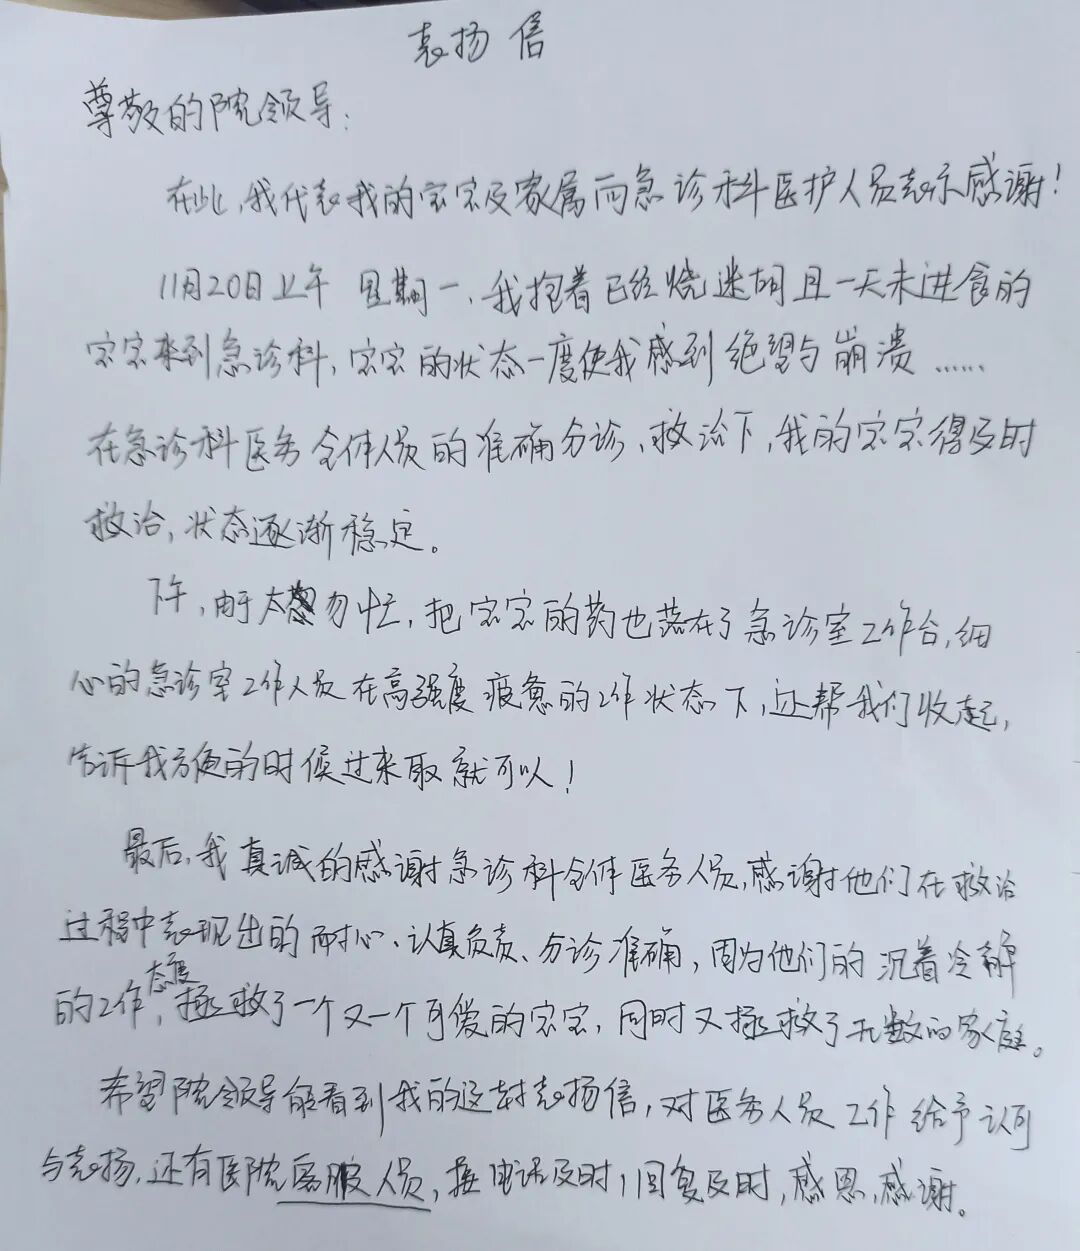 表扬信
尊敬的院领导：
在此，我代表我的宝宝及家属向急诊科医护人员表示感谢！
11月20日上午 星期一，我抱着已经烧迷胡且一天未进食的
宝宝来到急诊科，宝宝的状态一度使我感到绝望与崩溃……
在急诊科医务全体人员的准确分诊、救治下，我的宝宝得及时
救治，状态逐渐稳定。
下午，由于太匆忙，把宝宝的药也落在了急诊室工作台，细
心的急诊室工作人员在高强度疲惫的工作状态下，还帮我们收起，
告诉我方便的时候过来取就可以！
最后，我真诚的感谢急诊科全体医务人员，感谢他们在救治
过程中表现出的耐心、认真负责、分诊准确，因为他们的沉着冷静
的工作态度，拯救了一个又一个可爱的宝宝，同时又拯救了无数的家庭。
希望院领导能看到我的这封表扬信，对医务人员工作给予认可
与表扬，还有医院客服人员，接电话及时，回复及时，感恩，感谢。